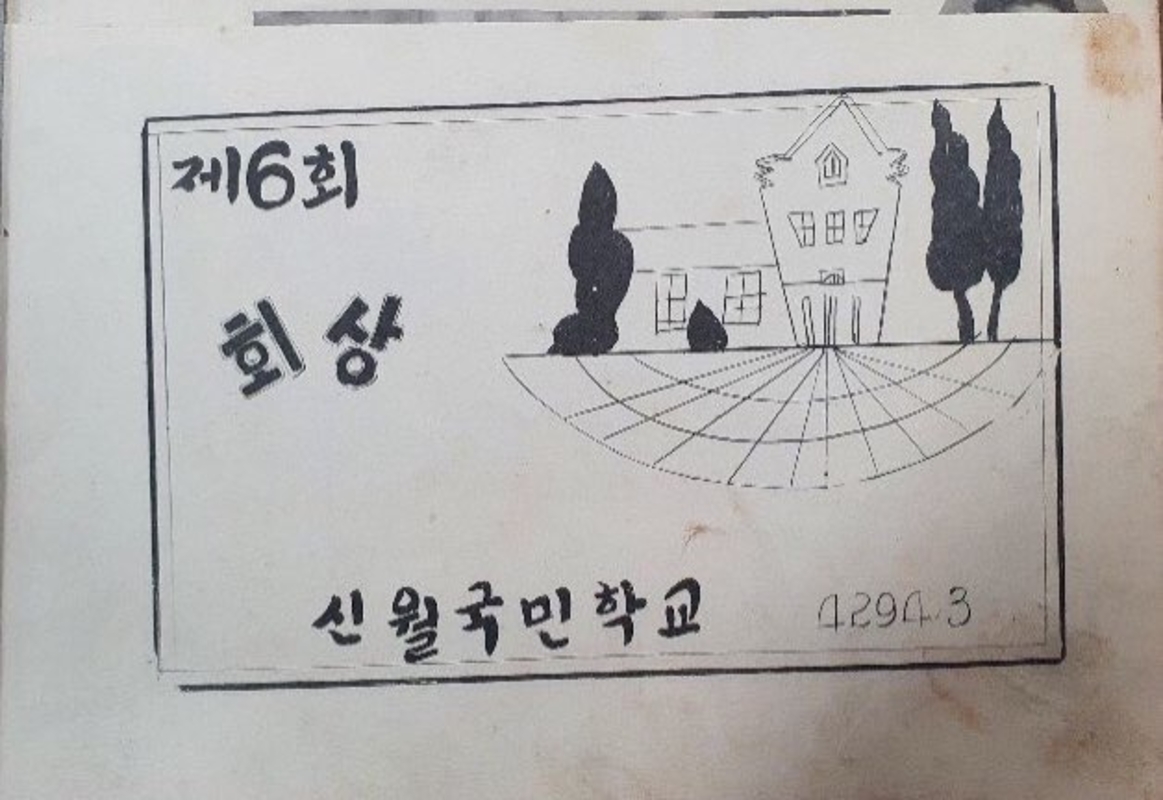 제6회
회상
신월국민학교 4294.3